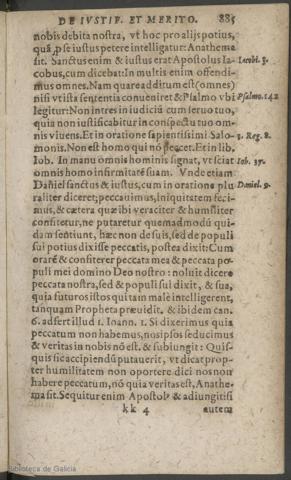 DE IVSTIF. ET MERITO. 885
nobis debita nostra, vt hoc pro alijs potius,
quã p se iustus petere intelligatur: Anathema
sit. Sanctus enim & iustus erat Apostolus Ia- Iacobi. 3.
cobus, cum dicebat: In multis enim offendi-
mus omnes. Nam quare additum est (omnes)
nisi vt ista sententia conueniret & Psalmo vbi Psalmo. 142
legitur: Non intres in iudiciũ cum seruo tuo,
quia non iustificabitur in conspectu tuo om-
nis viuens. Et in oratione sapientissimi Salo- 3. Reg. 8.
monis. Non est homo qui nõ peccet. Et in lib.
Iob. In manu omnis hominis signat, vt sciat Iob. 37.
omnis homo infirmitatẽ suam. Vnde etiam
Daniel sanctus & iustus, cum in oratione plu Daniel. 9.
raliter diceret; peccauimus, iniquitatem feci-
mus, & cætera quæ ibi veraciter & humiliter
confitetur, ne putaretur quemadmodũ qui-
dam sentiunt, hæc non de suis, sed de populi
sui potius dixisse peccatis, postea dixit: Cum
orarẽ & confiterer peccata mea & peccata po-
puli mei domino Deo nostro: noluit dicere
peccata nostra, sed & populi sui dixit, & sua,
quia futuros istos qui tam malè intelligerent,
tanquam Propheta præuidit. & ibidem can.
6. adfert illud 1. Ioann. 1. Si dixerimus quia
peccatum non habemus, nosipsos seducimus
& veritas in nobis nõ est. & subiungit: Quis-
quis sic accipiendũ putauerit, vt dicat prop-
ter humilitatem non oportere dici nos non
habere peccatum, nõ quia veritas est, Anathe-
ma sit. Sequitur enim Apostolꝰ & adiungit si
kk 4 autem
Biblioteca de Galicia